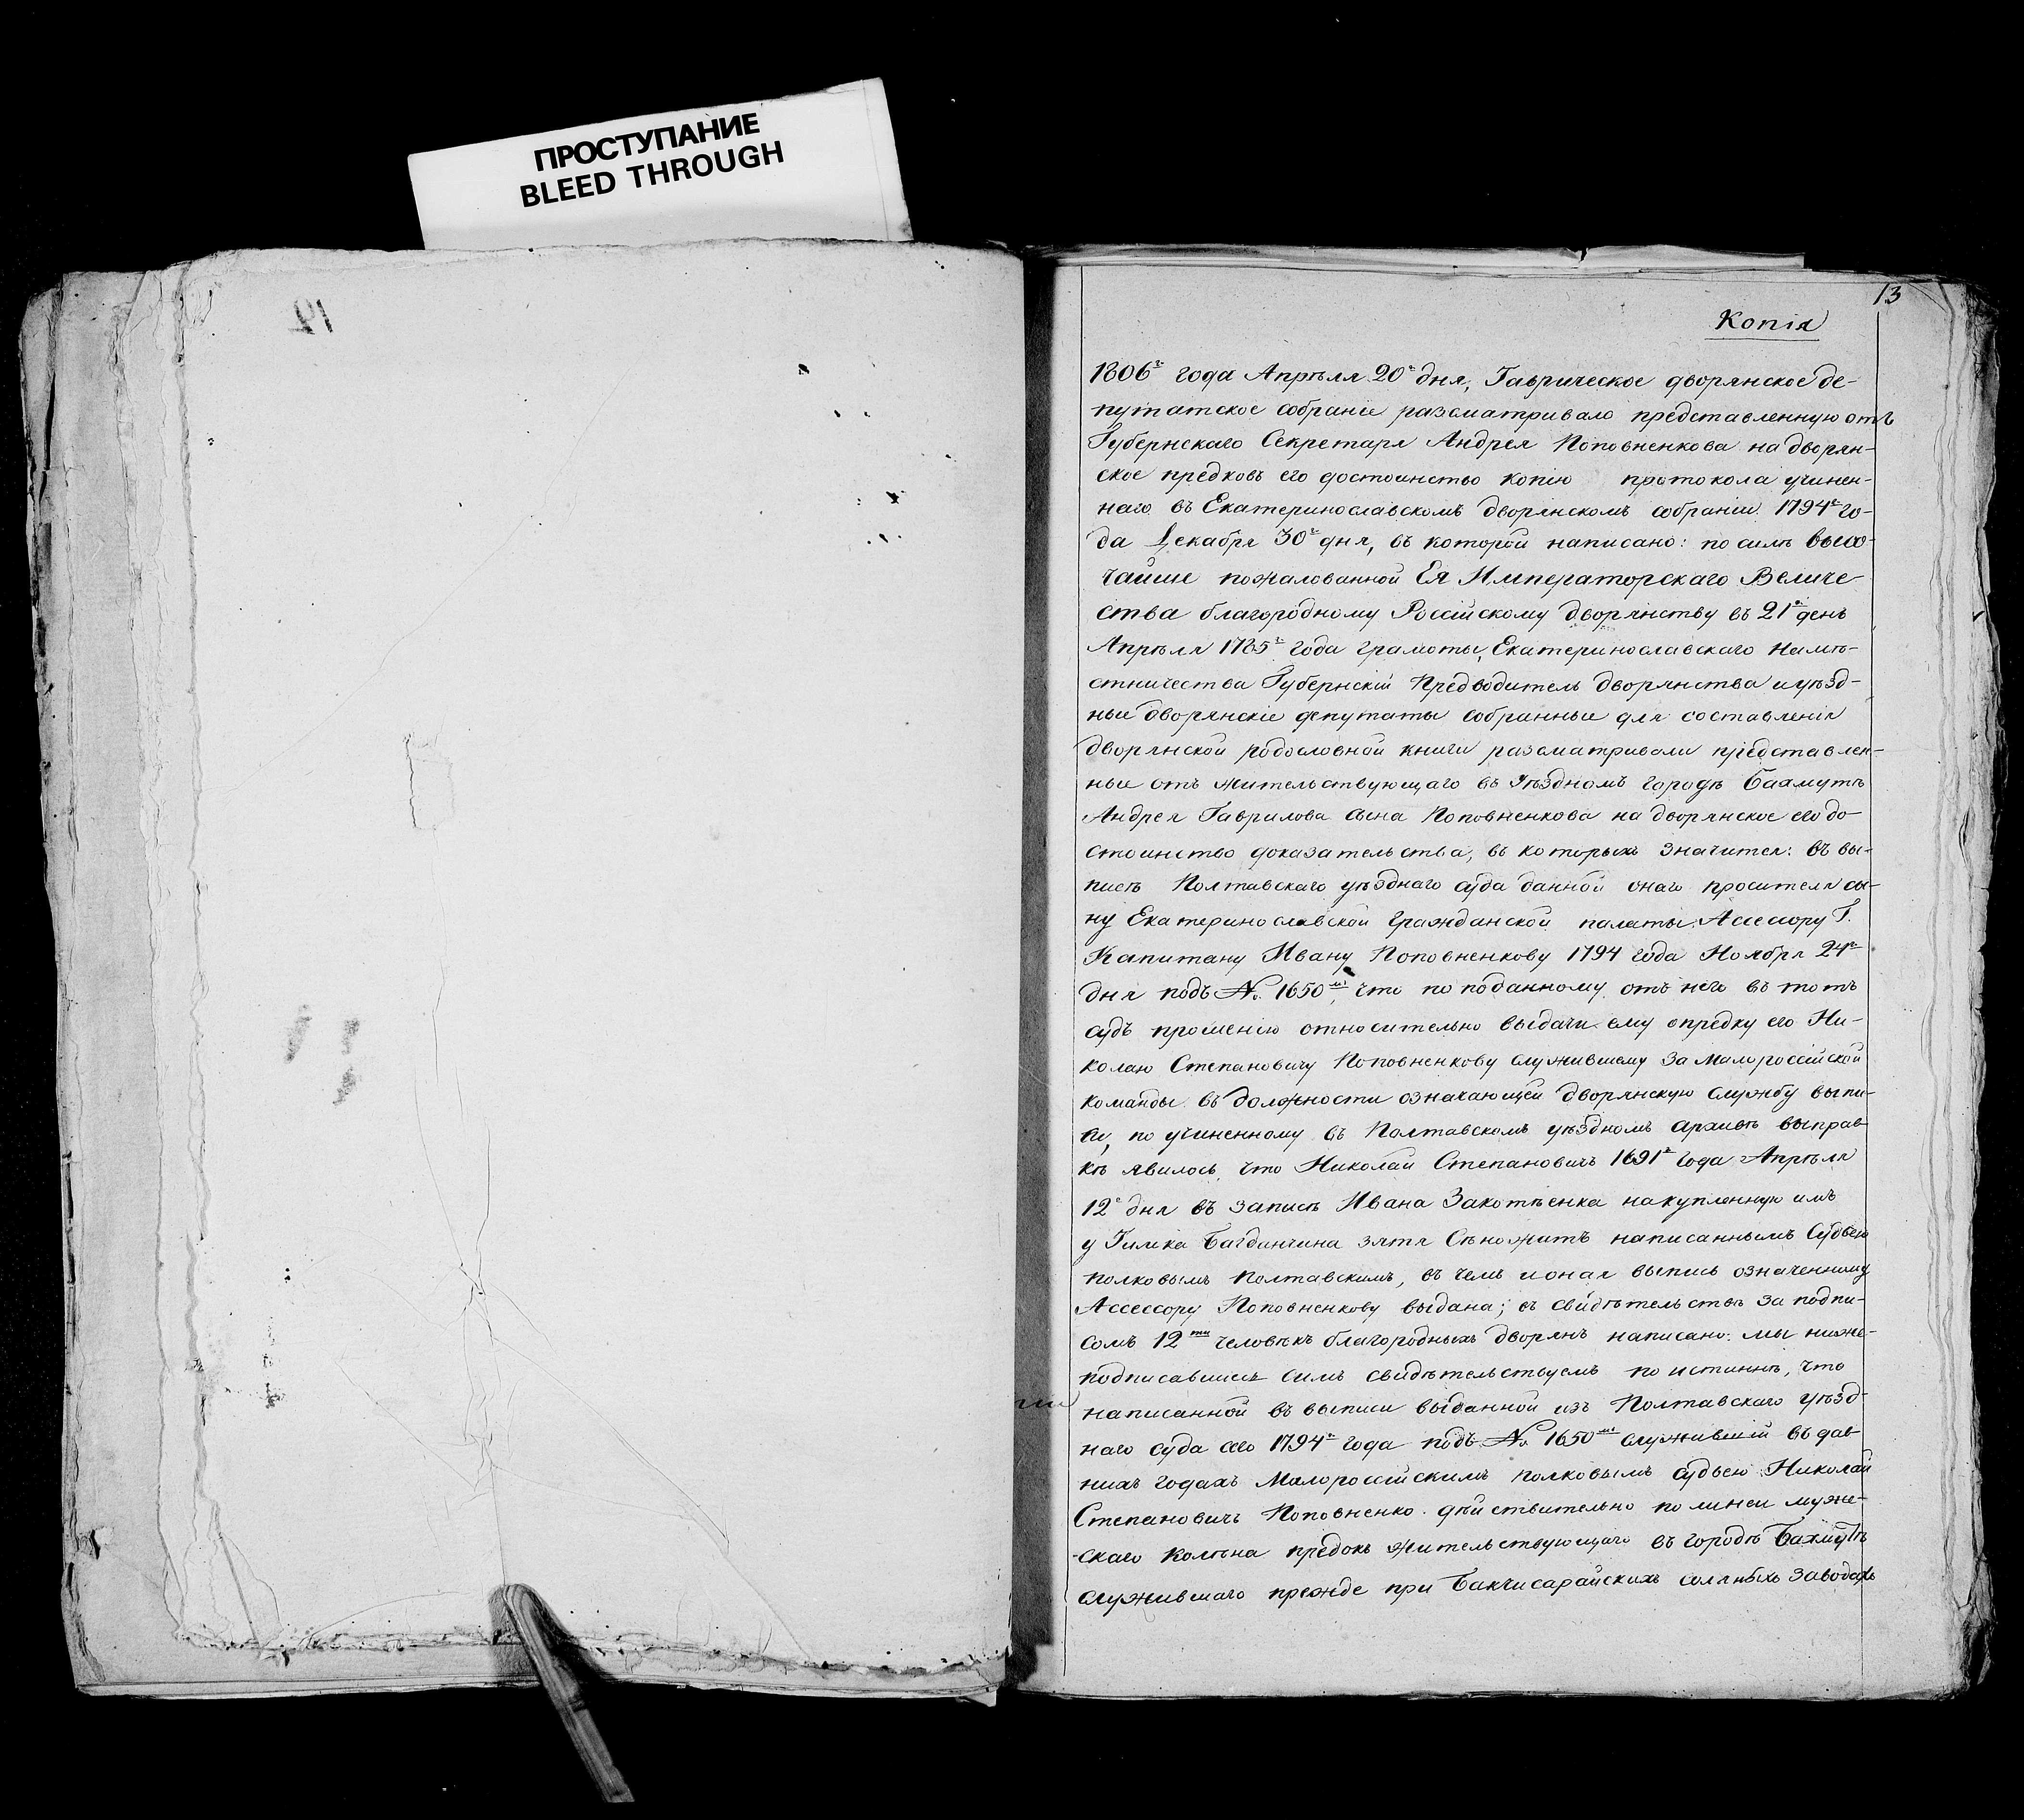 ПРОСТУПАНИЕ
BLEED THROUGH
13
Копія
1806г года Апрѣля 20г дня, Таврическое дворянское де-
путатское собраніе разсматривало представленную отъ
Губернскаго Секретаря Андрея Поповненкова на дворян-
ское предковъ его достоинство копію протокола учинен-
наго въ Екатеринославскомъ дворянскомъ собраніи 1794г го-
да Декабря 30г дня, въ которой написано: по силѣ высо-
чайше пожалованной Ея Императорскаго Величе-
ства благородному Россійскому дворянству въ 21й день
Апрѣля 1785г года грамоты, Екатеринославскаго Намѣ-
стничества Губернскій Предводитель дворянства и уѣзд-
ные дворянскіе депутаты собранные для составленія
дворянской родословной книги разсматривали представлен-
ные отъ жительствующаго въ Уѣздномъ городѣ Бахмутѣ
Андрея Гаврилова сына Поповненкова на дворянское его до-
стоинство доказательства, въ которыхъ значится: въ вы-
писѣ Полтавскаго уѣзднаго суда данной онаго просителя сы-
ну Екатеринославской Гражданской палаты Ассесору Г.
Капитану Ивану Поповненкову 1794 года Ноября 24г
дня подъ №. 1650мъ, что по поданному отъ него въ тотъ
судъ прошенію относительно выдачи ему о предку его Ни-
колаю Степановичу Поповненкову служившему за малороссійской
команды въ должности означающей дворянскую службу выпи-
си, по учиненному въ Полтавскомъ уѣздномъ архивѣ выправ-
кѣ явилось, что Николай Степановичъ 1691г года Апрѣля
12г дня въ записѣ Ивана Закотѣенка на купленную имъ
у Гилика Багданчина зятя Сѣножать написаннымъ Судьею
полковымъ полтавскимъ, въ чемъ и оная выпись означенному
Ассессору Поповненкову выдана; въ свидѣтельствѣ за подпи-
сомъ 12ти человѣкъ благородныхъ дворянъ написано: мы ниже-
подписавшиеся симъ свидѣтельствуемъ по истиннѣ, что
написанной въ выписи выданной изъ Полтавскаго Уѣзд-
наго суда сего 1794г года подъ №. 1650мъ служившій въ дав-
нихъ годахъ Малороссійскимъ полковымъ судьею Николай
Степановичъ Поповненко дѣйствительно по линеи муже-
скаго колѣна предокъ жительствующаго въ городѣ Бахмутѣ
служившаго прежде при Бакчисарайскихъ соляныхъ заводахъ